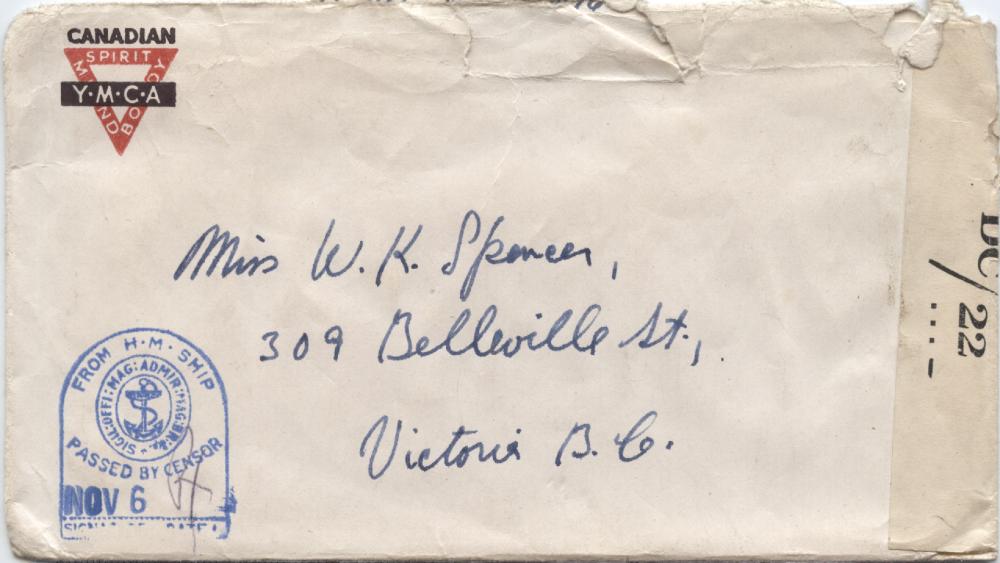 CANADIAN
SPIRIT
MIND
BODY
Y·M·C·A
Miss W. K. Spencer,
309 Belleville St.,
Victoria B.C.
FROM H·M·SHIP
SIGILL:OFFI:MAG:ADMIR:MAG:BR:&c.
PASSED BY CENSOR
NOV 6
DC/22